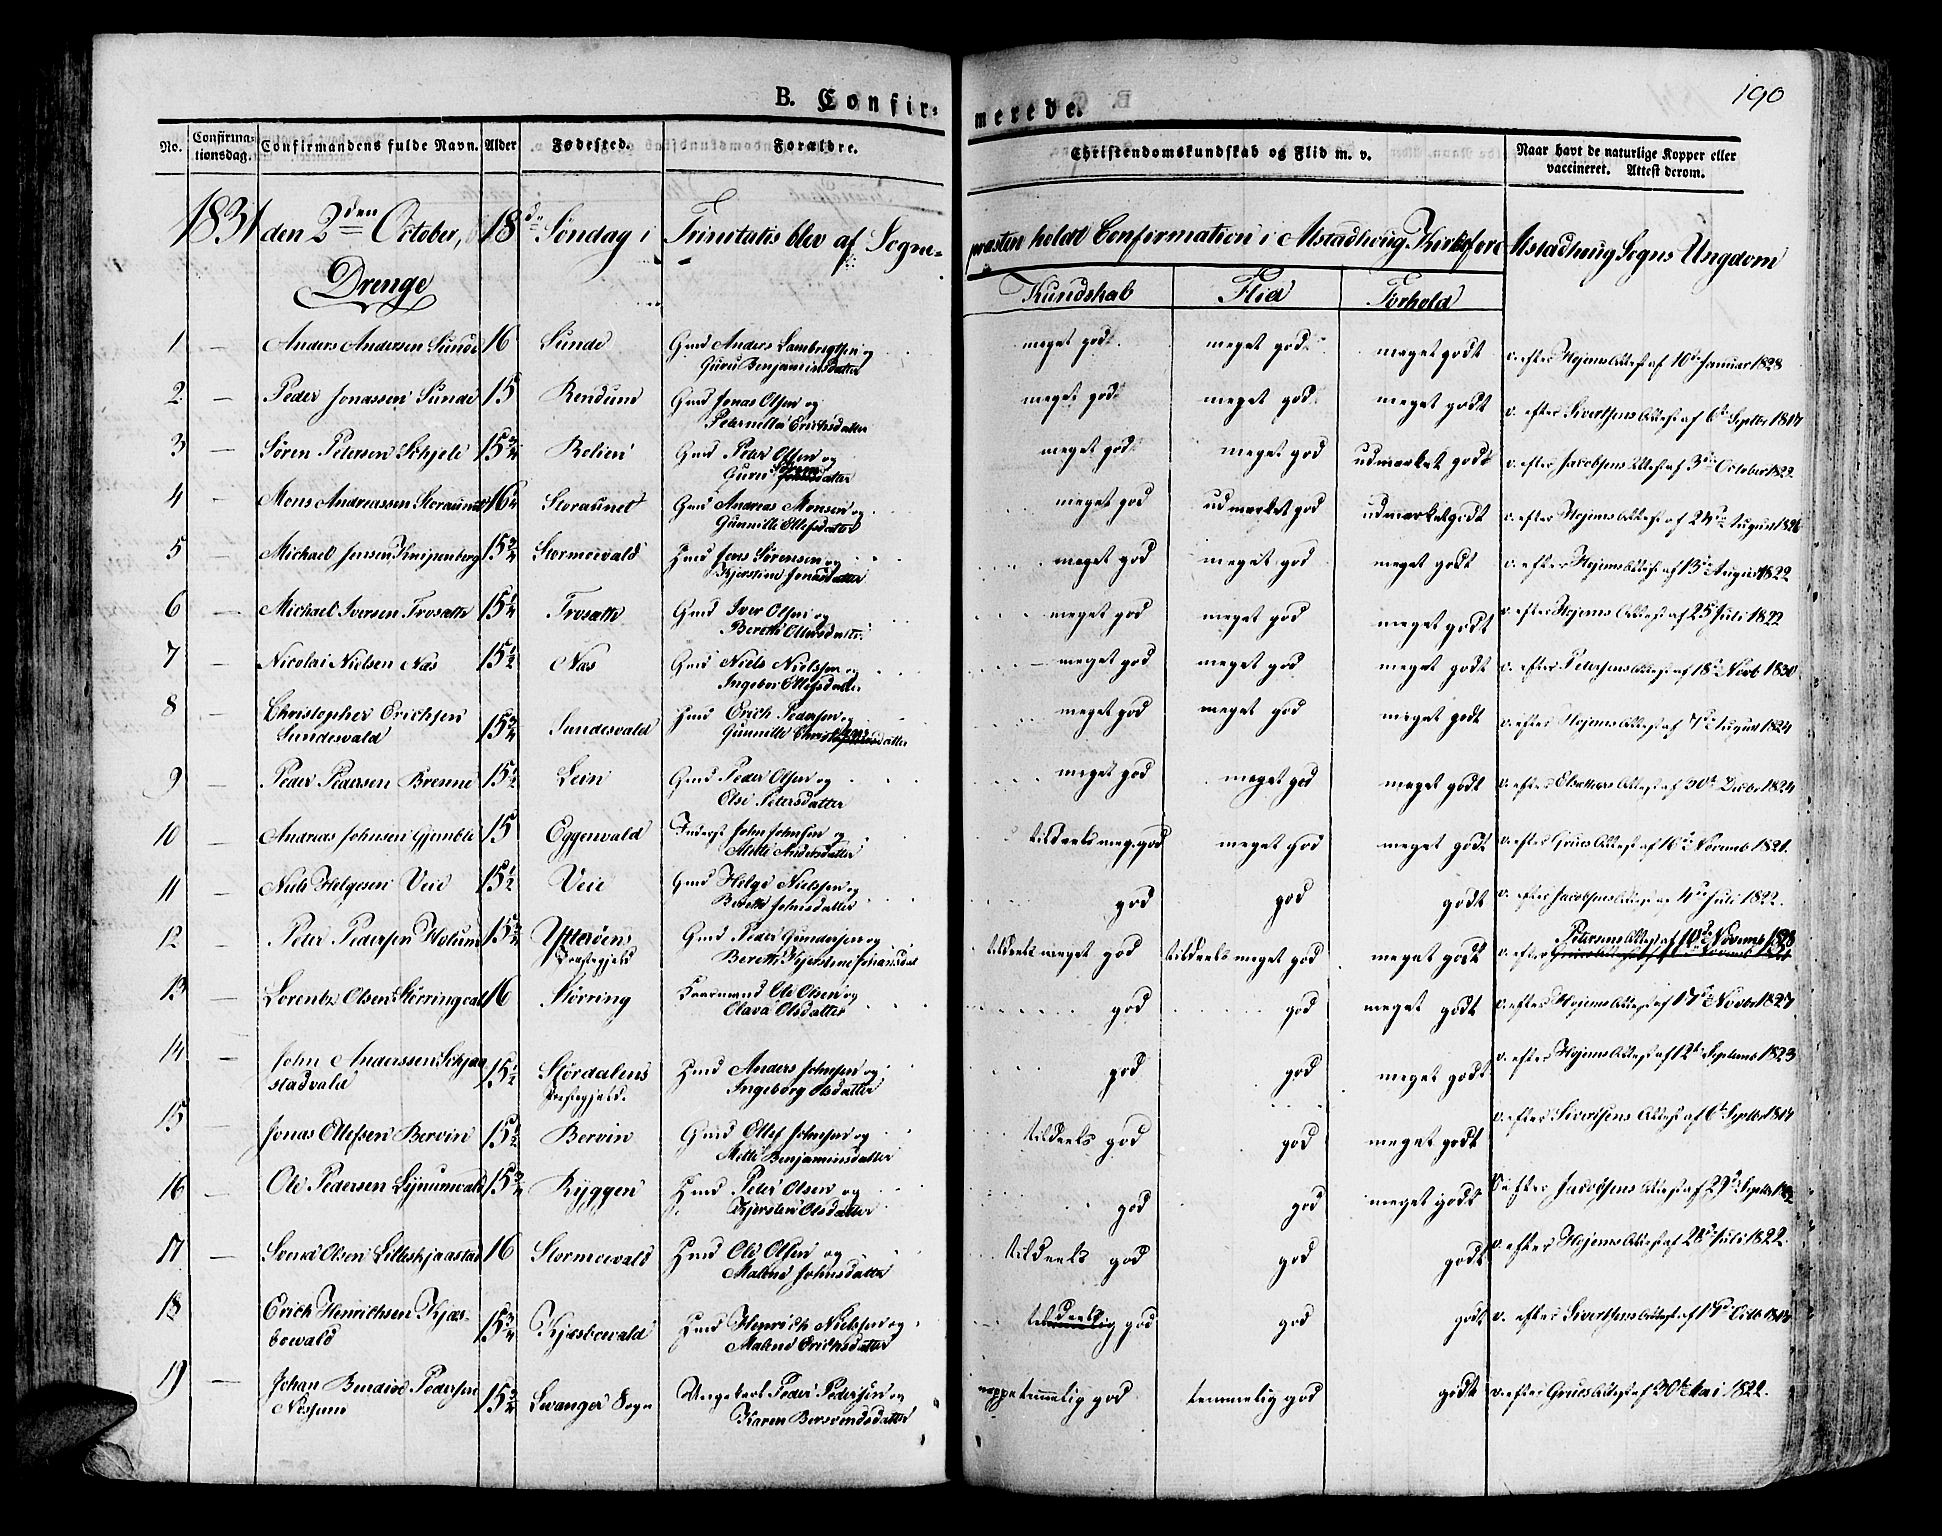 190
B. Confir= merede.
No. Confirma=tionsdag. Confirmandens fulde Navn. Alder Fødested. Forældre. Christendomskundskab og Flid m. v. Naar havt de naturlige Kopper eller vaccineret. Attest derom.
1831 den 2den October, 18de Søndag i Trinitatis blev af Sogne= præsten holdt Confirmation i Alstadhoug Kirke for Alstadhoug Sogns Ungdom
Drenge
Kundskab Flid Forhold
1 — Anders Andersen Sunde 16 Sunde Gmd Anders Lambregtsen og Guru Benjaminsdatter meget god meget god meget godt v. efter Hojems Attest af 10de Januar 1828
2 — Peder Jonassen Sunde 15 Rendum Gmd Jonas Olsen og Peternilla Erichsdatter meget god meget god meget godt v. efter Sivertsens Attest af 6te Septbr 1817
3 — Søren Petersen Schjele 15 3/4 Gmd Peter Olsen og Guru datter meget god meget god udmærket godt v. efter Jacobsens Attest af 3de October 1822
4 — Mons Andreassen Storaunet 16 1/4 Storaunet Gmd Andreas Monsen og Gunnille Ellefsdatter meget god udmærket god udmærket godt v. efter Hojems Attest af 24de August
5 — Michael Jensen Kneipenberg 15 3/4 Stormoevald Hmd Jens Sørensen og Kjerstine Jonasdatter meget god meget god meget godt v. efter Hojems Attest af 13de August 1822
6 — Michael Iversen Trosatte 15 1/2 Trosatte Gmd Iver Olsen og Berethe datter meget god meget god meget godt v. efter Hojems Attest af 25 Juli 1822
7 — Nicolai Nielsen Næs 15 1/2 Næs Gmd Niels Nielsen og Ingebor Ellefsdatter meget god meget god meget godt v. efter Petersens Attest af 18de Novb 1830
8 — Christopher Erichsen Sundesvald 15 3/4 Sundesvald Hmd Erich Pedersen og Gunnille datter meget god meget god meget godt v. efter Hojems Attest af 7de August 1824
9 — Peder Pedersen Brenne 15 1/2 Lein Gmd Peder Olsen og Olse Petersdatter meget god meget god meget godt v. efter Attest af 30te Decbr 1824
10 — Andreas Johnsen Gjemble 15 Eggenvald Inderst John Johnsen og Mette Andersdatter tildeels meg. god meget god meget godt v. efter Grues Attest af 16de Novemb 1821.
11 — Niels Helgesen Veie 15 1/2 Veie Gmd Helge Nielsen og Berethe Johnsdatter god god godt v. efter Jacobsens Attest af 4de Juli 1822.
12 — Peter Pedersen Holum 15 3/4 Ytterøens Præstegjeld Gmd Peder Gundersen og Berethe Kjerstine Johansdat tildeels meget god tildeels meget god meget godt v. efter Petersens Attest af 10de Novemb
13 — Lorents Olsen Størringvald 16 Størring Huusmand Ole Olsen og Olava Olsdatter god god meget godt v. efter Hojems Attest af 17de Novbr 1827
14 — John Anderssen Schjaastadvald 15 1/2 Størdalens Præstegjeld. Hmd Anders Johnsen og Ingeborg Olsdatter god god meget godt v. efter Hojems Attest af 12te Septemb 1823
15 — Jonas Ellefsen Bervin 15 1/2 Bervin Gmd Ellef Johnsen og Mette Benjaminsdatter tildeels god god meget godt v. efter Sivertsens Attest af 6te Septbr 1817
16 — Ole Pedersen Lynumvald 15 3/4 Ryggen Hmd Peter Olsen og Kjersten Olsdatter god god meget godt v. efter Jacobsens Attest af 27de Septbr
17 — Svend Olsen Lilleskjaastad 16 Stormoevald Hmd Ole Olsen og Malene Johnsdatter tildeels god god godt v. efter Hojems Attest af 28de Juli 1822.
18 — Erich Henrichsen Kjæs=boevald 15 3/4 Kjæsboevald Hmd Henrich Nielsen og Malene Erichsdatter tildeels god god godt v. efter Sivertsens Attest af Octb
19 — Johan Bendix Pedersen Nossum 15 3/4 Levanger Sogn Ungekarl Peder Pedersen og Karen Bersvendsdatter neppe temmelig god temmelig god godt v. efter Grues Attest af 30te Mai 1822.